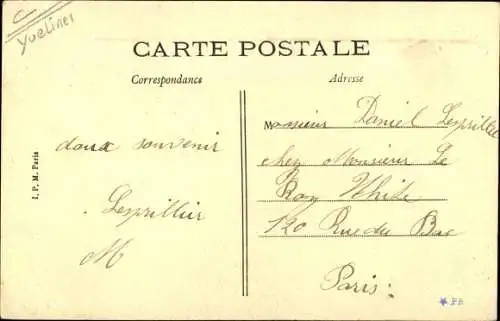 Yvelines
CARTE POSTALE
Correspondance
Adresse
doux souvenir
M
I. P. M. Paris
Monsieur Daniel
chez Monsieur Le
Roy White
120 Rue du Bac
Paris